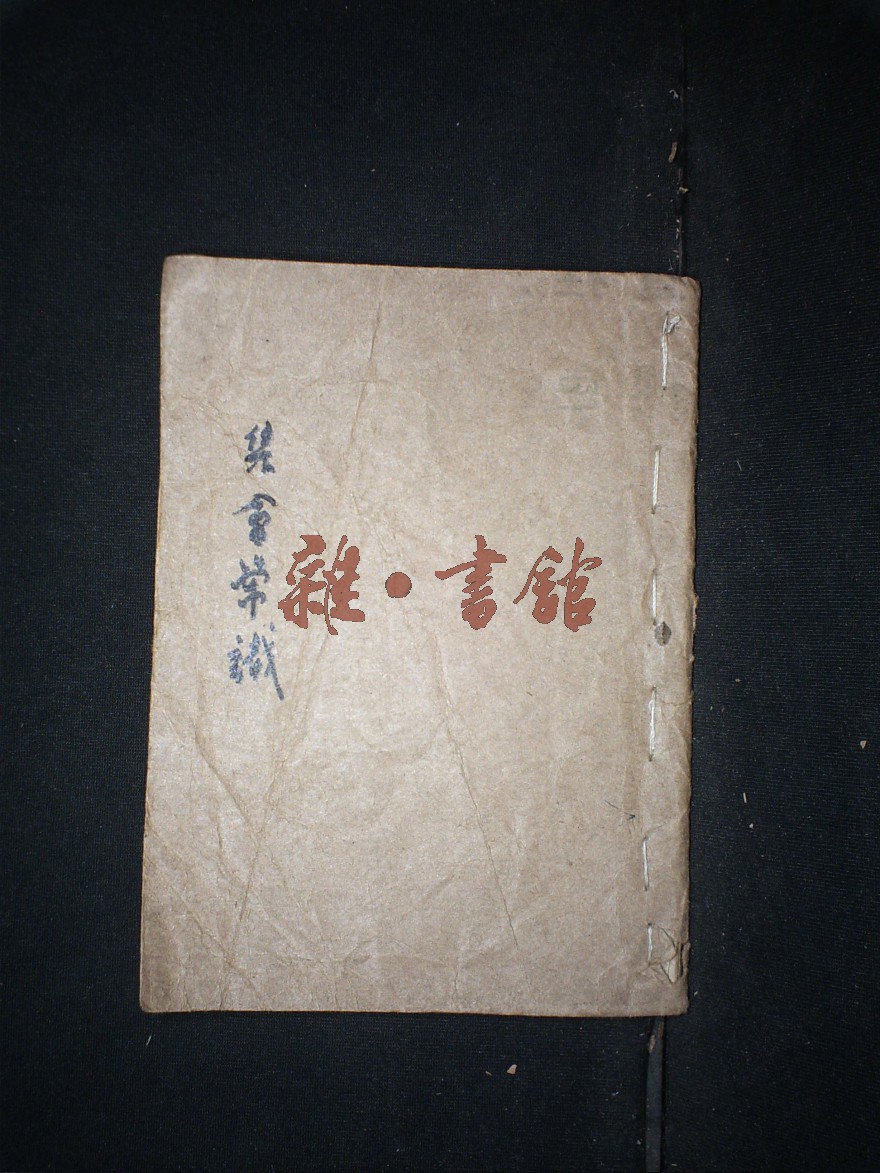 集會常識
雜·書館